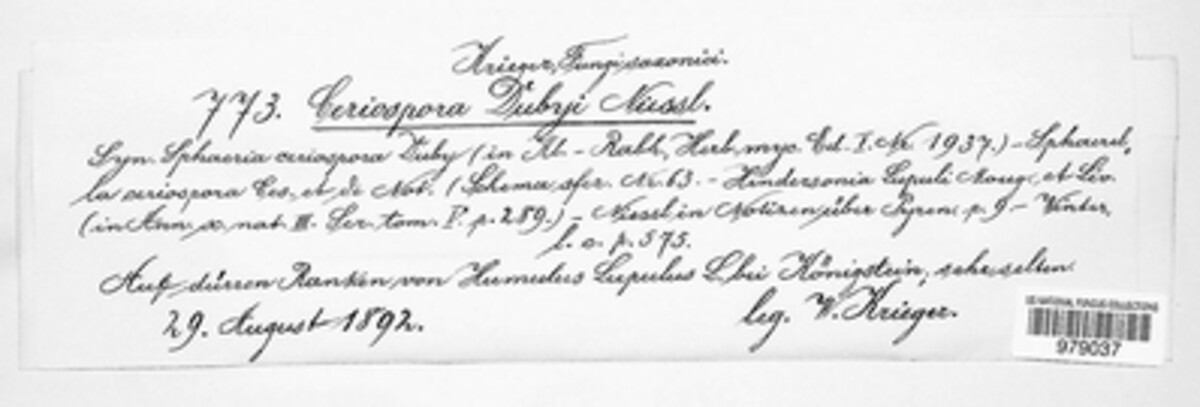 Krieger, Fungi saxonici.
773. Ceriospora Dubyi Niessl.
Syn. Sphaeria ceriospora Duby (in Kl. - Rabh. Herb. myc. Ed. I. Nr. 1937.) - Sphaerel-
la ceriospora Ces. et de Not. (Schema sfer. Nr. 63. - Hendersonia Lupuli Moug. et Lév.
(in Ann. sc. nat. III. Ser. tom. V. p. 289.) - Niessl in Notizen über Pyren. p. 9 - Winter,
l. c. p. 575.
Auf dürren Ranken von Humulus Lupulus L. bei Königstein, sehr selten.
29. August 1892.
leg. W. Krieger.
US NATIONAL FUNGUS COLLECTIONS
979037